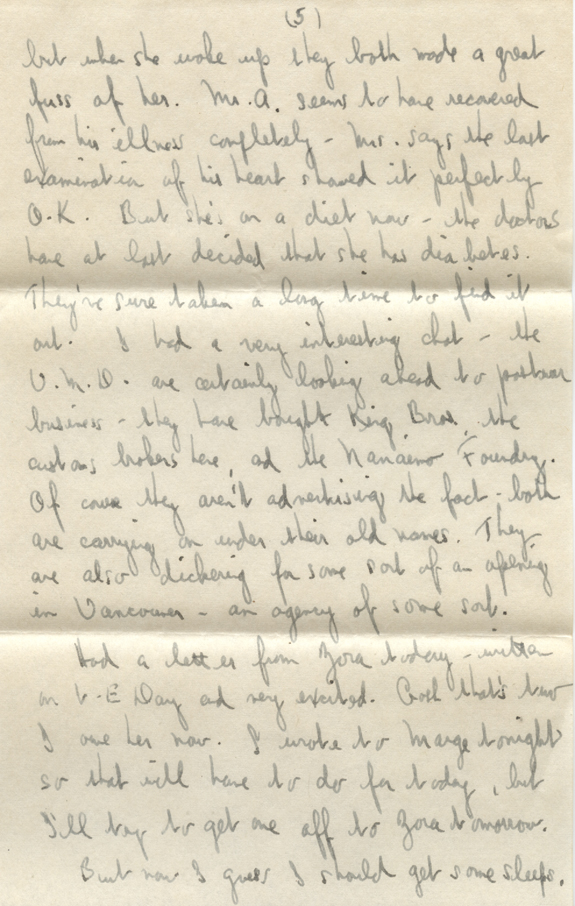 (5)
but when she woke up they both made a great
fuss of her. Mr. A. seems to have recovered
from his illness completely - Mrs. says the last
examination of his heart showed it perfectly
O.K. But she's on a diet now - the doctors
have at last decided that she has diabetes.
They've sure taken a long time to find it
out. I had a very interesting chat - the
V.M.D. are certainly looking ahead to postwar
business - they have bought King Bros., the
customs brokers here, and the Nanaimo Foundry.
Of course they aren't advertising the fact - both
are carrying on under their old names. They
are also dickering for some sort of an opening
in Vancouver - an agency of some sort.
Had a letter from Zora today - written
on V-E Day and very excited. Gosh that's two
I owe her now. I wrote to Marge tonight
so that will have to do for today, but
I'll try to get one off to Zora tomorrow.
But now I guess I should get some sleep.